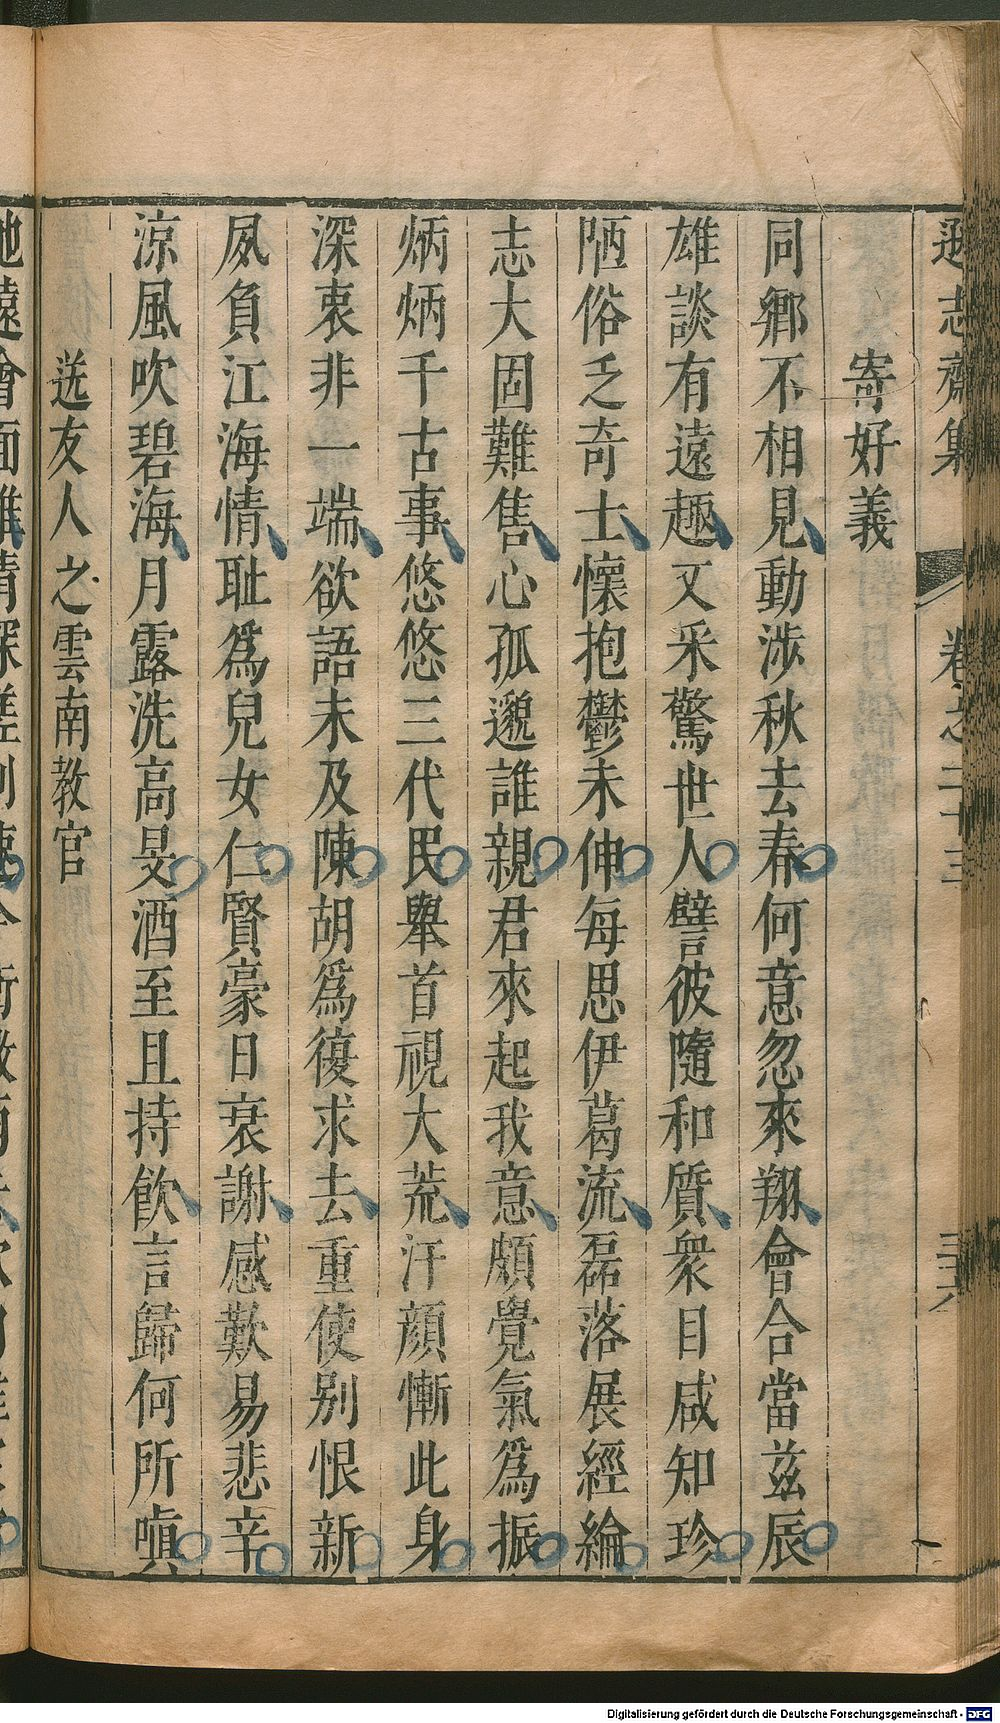 遜志齋集 卷之二十三 三十八
寄好義
同鄉不相見動涉秋去春何意忽來翔會合當茲辰
雄談有遠趣文采驚世人譬彼隨和質衆目咸知珍
陋俗乏奇士懷抱鬱未伸每思伊葛流磊落展經綸
志大固難售心孤邈誰親君來起我意頗覺氣爲振
炳炳千古事悠悠三代民舉首視大荒汗顏慚此身
深衷非一端欲語未及陳胡爲復求去重使别恨新
夙負江海情耻爲兒女仁賢豪日衰謝感歎易悲辛
涼風吹碧海月露洗高旻酒至且持飲言歸何所嗔
送友人之雲南教官
Digitalisierung gefördert durch die Deutsche Forschungsgemeinschaft - DFG